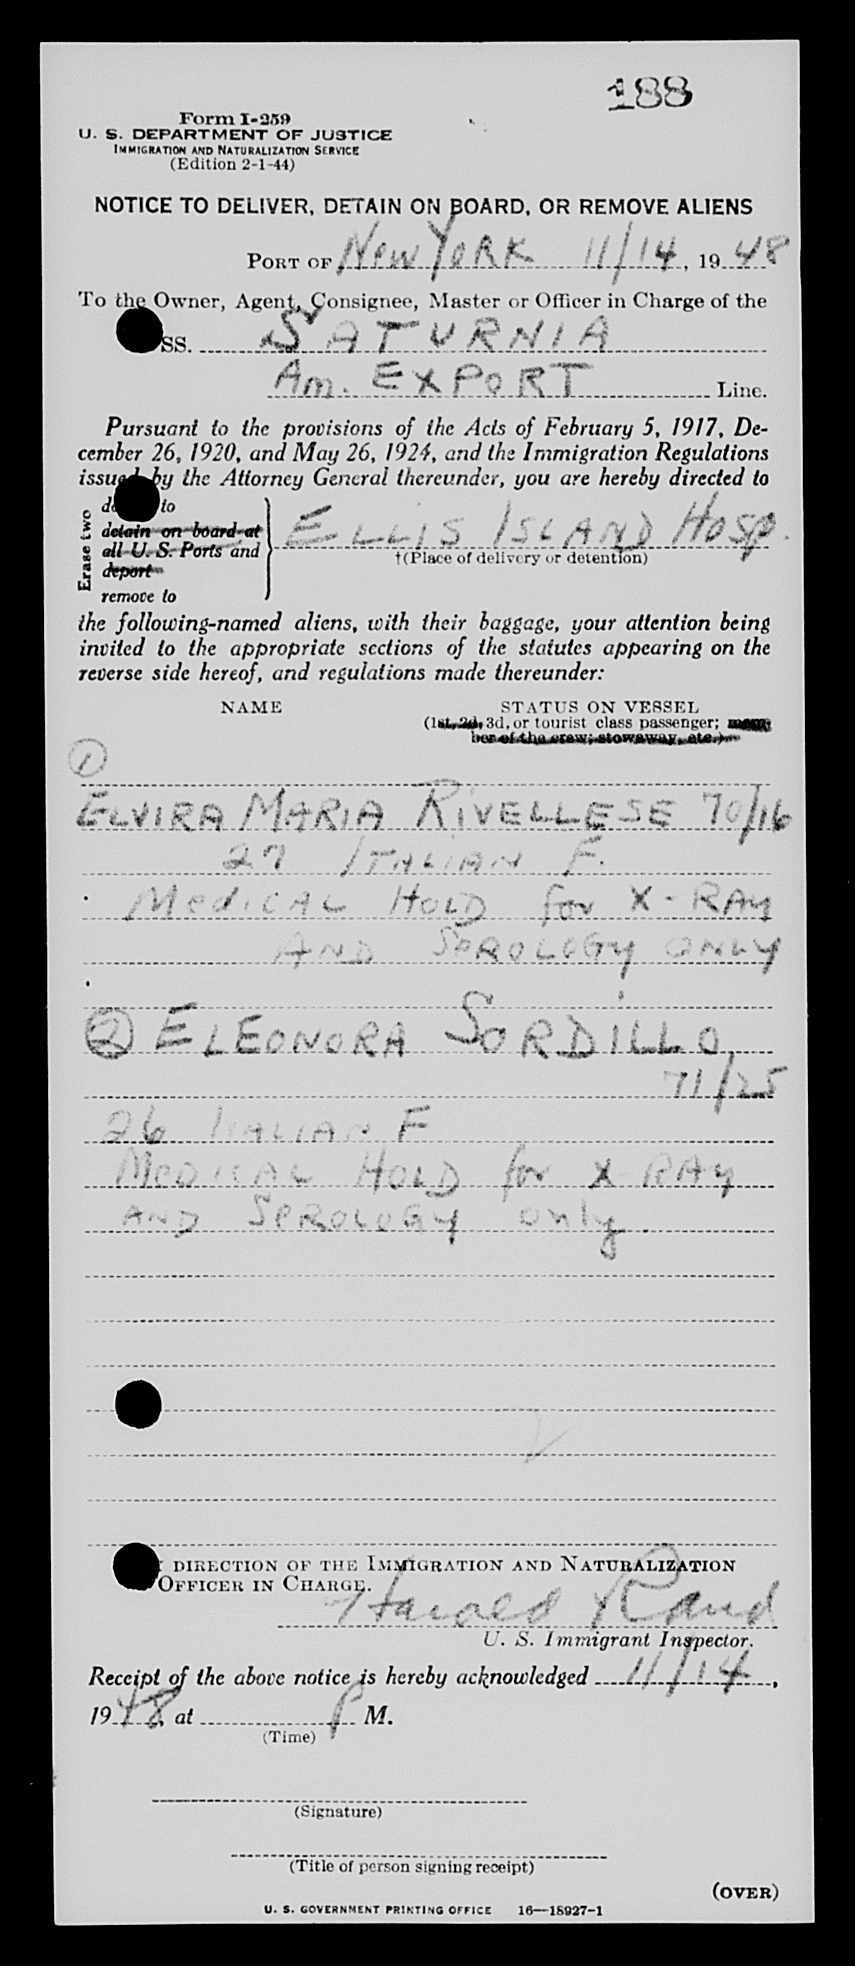 188
Form I-259
U. S. DEPARTMENT OF JUSTICE
IMMIGRATION AND NATURALIZATION SERVICE
(Edition 2-1-44)
NOTICE TO DELIVER, DETAIN ON BOARD, OR REMOVE ALIENS
PORT OF New YORK 11/14, 1948
To the Owner, Agent, Consignee, Master or Officer in Charge of the
SS. SATURNIA
Am. EXPORT Line.
Pursuant to the provisions of the Acts of February 5, 1917, De-
cember 26, 1920, and May 26, 1924, and the Immigration Regulations
issued by the Attorney General thereunder, you are hereby directed to
Erase two
to
detain on board at
all U. S. Ports and
deport
remove to
ELLIS ISLAND Hosp.
†(Place of delivery or detention)
the following-named aliens, with their baggage, your attention being
invited to the appropriate sections of the statutes appearing on the
reverse side hereof, and regulations made thereunder:
NAME STATUS ON VESSEL
(1st, 2d, 3d, or tourist class passenger; mem-
ber of the crew; stowaway, etc.)
1
ELVIRA MARIA RIVELLESE 70/16
27 ITALIAN F.
MedICAL HOLD for X-RAy
AND SeROLOGy ONLy
2 ELEONORA SORDILLO
71/25
26 ITALIAN F
MEDICAL HOLD for X RAy
AND SeROLOGy only.
DIRECTION OF THE IMMIGRATION AND NATURALIZATION
OFFICER IN CHARGE.
Harold Rand
U. S. Immigrant Inspector.
Receipt of the above notice is hereby acknowledged 11/14,
1948, at P M.
(Time)
(Signature)
(Title of person signing receipt)
(OVER)
U. S. GOVERNMENT PRINTING OFFICE 16—18927-1